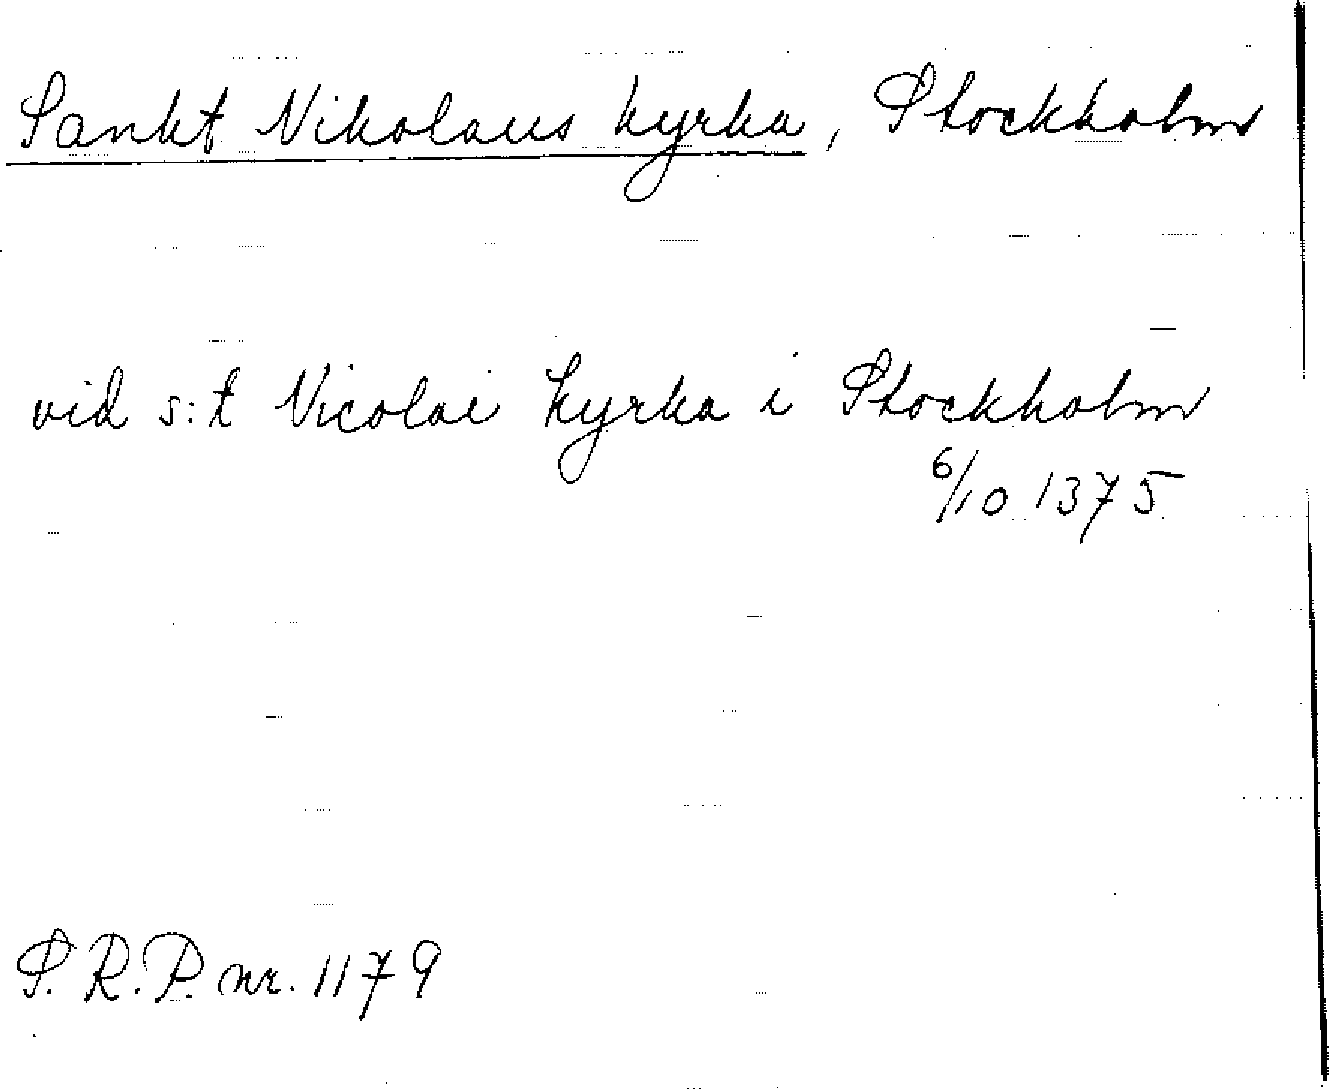 Sankt Nikolaus kyrka, Stockholm
vid s:t Nicolai kyrka i Stockholm
6/10 1375
S.R.P. nr. 1179